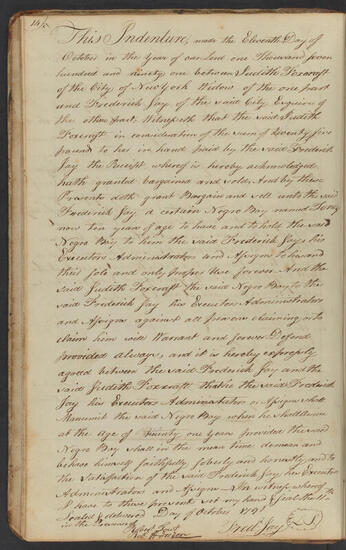 This Indenture, made the Eleventh Day of
October in the Year of our Lord one Thousand seven
hundred and ninety one between Judith Foxcroft
of the City of New York Widow of the one part
and Frederick Jay of the said City Esquire of
the other part. Witnesseth that the said Judith
Foxcroft in consideration of the sum of twenty five
pound to her in hand paid by the said Frederick
Jay the Receipt whereof is hereby acknowledged
hath granted bargained and sold, And by these
Presents doth grant Bargain and sell unto the said
Frederick Jay a certain Negro Boy named
now ten year of age to have and to hold the said
Negro Boy to him the said Frederick Jay his
Executors Administrators and Assigns to
their sole and only proper Use forever. And the
said Judith Foxcroft the said Negro Boy to the
said Frederick Jay his Executors Administrators
and Assigns against all persons claiming or to
claim him will Warrant and forever Defend
provided always, and it is hereby expressly
agreed between the said Frederick Jay and the
said Judith Foxcroft that he the said Frederick
Jay his Executors Administrators or Assigns shall
Manumit the said Negro Boy when he shall
at the Age of twenty one Years provided the said
Negro Boy shall in the mean time demean and
behave himself faithfully soberly and honestly and to
the Satisfaction of the said Frederick Jay his Executors
Administrators and Assigns. In witness whereof
I have to these presents set my hand & seal the 11th
Sealed & delivered Day of October 1791
in the Presence of
Fred. Jay LS